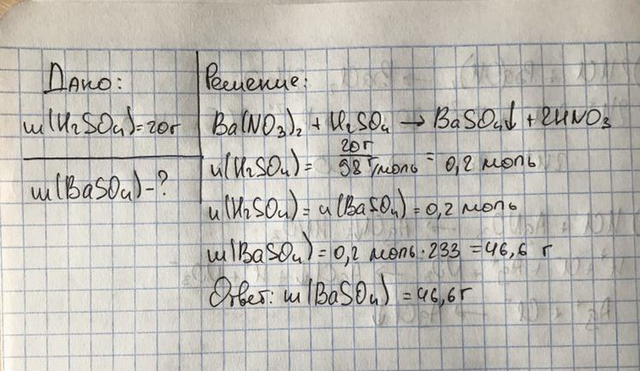 Дано:
m(H2SO4)=20г
m(BaSO4)-?
Решение:
Ba(NO3)2 + H2SO4 → BaSO4↓ + 2HNO3
n(H2SO4)= 20г / 98 г/моль = 0,2 моль
n(H2SO4)= n(BaSO4)= 0,2 моль
m(BaSO4)= 0,2 моль·233 =46,6 г
Ответ: m(BaSO4) =46,6г